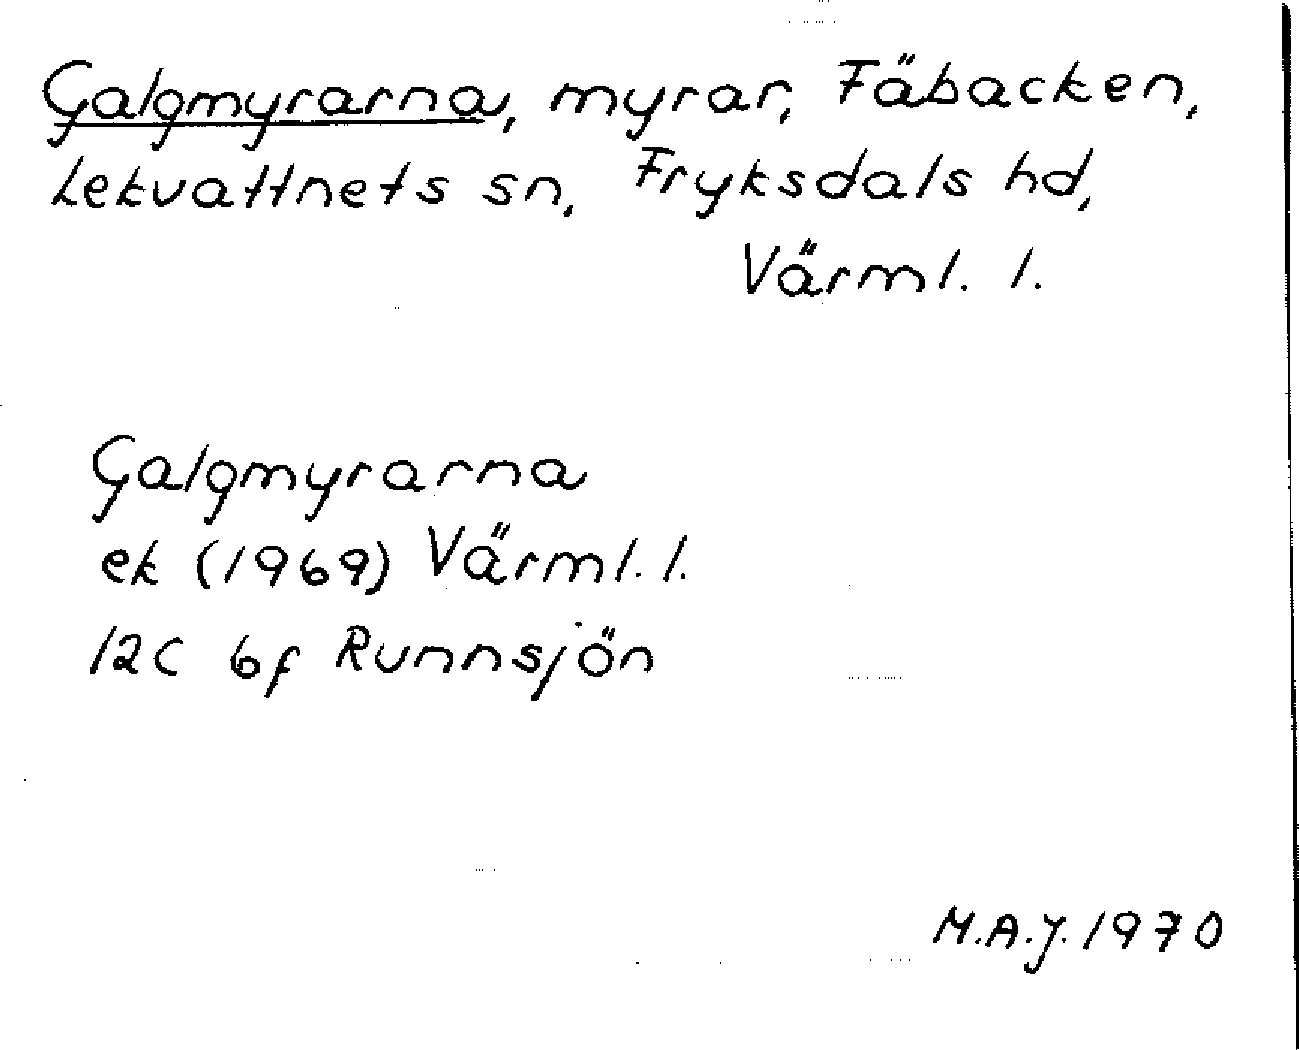 Galgmyrarna, myrar, Fäbacken,
Lekvattnets sn, Fryksdals hd,
Värml. l.
Galgmyrarna
ek (1969) Värml. l.
12C 6f Runnsjön
M.A.J. 1970